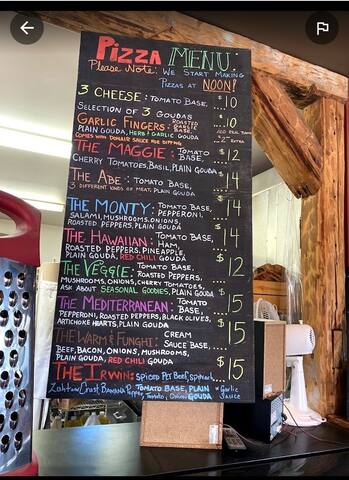 PIZZA MENU:
Please Note: WE START MAKING
PIZZAS AT NOON!
3 CHEESE: TOMATO BASE, $10
SELECTION OF 3 GOUDAS
GARLIC FINGERS: ROASTED GARLIC BASE, $10
PLAIN GOUDA, HERB & GARLIC GOUDA
COMES WITH DONAIR SAUCE FOR DIPPING EXTRA
THE MAGGIE: TOMATO BASE, $12
CHERRY TOMATOES, BASIL, PLAIN GOUDA
THE ABE: TOMATO BASE, $14
3 DIFFERENT KINDS OF MEAT, PLAIN GOUDA
THE MONTY: TOMATO BASE, $14
PEPPERONI,
SALAMI, MUSHROOMS, ONIONS,
ROASTED PEPPERS, PLAIN GOUDA
THE HAWAIIAN: TOMATO BASE, $14
HAM,
ROASTED PEPPERS, PINEAPPLE
PLAIN GOUDA, RED CHILI GOUDA
THE VEGGIE: TOMATO BASE, $12
ROASTED PEPPERS,
MUSHROOMS, ONIONS, CHERRY TOMATOES,
ASK ABOUT SEASONAL GOODIES, PLAIN GOUDA
THE MEDITERRANEAN: TOMATO BASE, $15
PEPPERONI, ROASTED PEPPERS, BLACK OLIVES,
ARTICHOKE HEARTS, PLAIN GOUDA
THE WARM & FUNGHI: CREAM SAUCE BASE, $15
BEEF, BACON, ONIONS, MUSHROOMS,
PLAIN GOUDA, RED CHILI GOUDA
THE IRWIN: SPICED BEEF, $15
TOMATO BASE, PLAIN GOUDA
Garlic Sauce